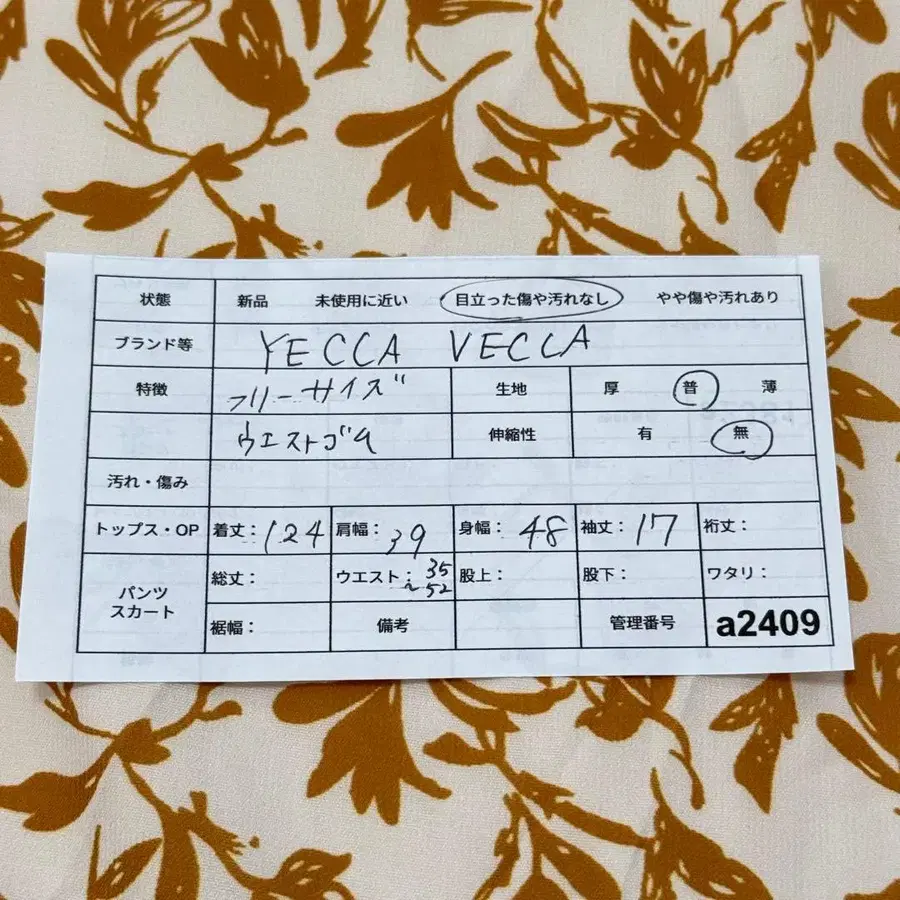 状態 新品 未使用に近い 目立った傷や汚れなし やや傷や汚れあり
ブランド等 YECCA VECCA
特徴 フリーサイズ 生地 厚 普 薄
ウエストゴム 伸縮性 有 無
汚れ・傷み
トップス・OP 着丈：124 肩幅：39 身幅：48 袖丈：17 裄丈：
パンツ スカート 総丈： ウエスト：35～52 股上： 股下： ワタリ：
裾幅： 備考 管理番号 a2409